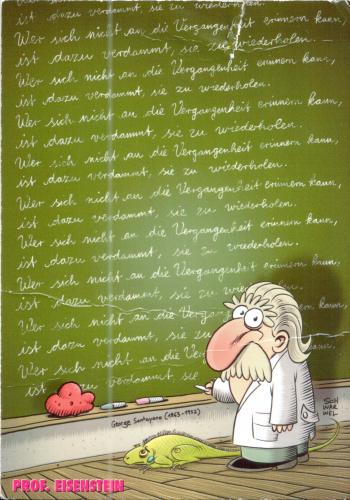 ist dazu verdammt, sie zu wiederholen.
Wer sich nicht an die Vergangenheit erinnern kann,
ist dazu verdammt, sie zu wiederholen.
Wer sich nicht an die Vergangenheit erinnern kann,
ist dazu verdammt, sie zu wiederholen.
Wer sich nicht an die Vergangenheit erinnern kann,
ist dazu verdammt, sie zu wiederholen.
Wer sich nicht an die Vergangenheit erinnern kann,
ist dazu verdammt, sie zu wiederholen.
Wer sich nicht an die Vergangenheit erinnern kann,
ist dazu verdammt, sie zu wiederholen.
Wer sich nicht an die Vergangenheit erinnern kann,
ist dazu verdammt, sie zu wiederholen.
Wer sich nicht an die Vergangenheit erinnern kann,
ist dazu verdammt, sie zu
Wer sich nicht an die Vergangenheit
ist dazu verdammt, sie
George Santayana (1863-1952)
SCH
WAR
WEL
PROF. EISENSTEIN